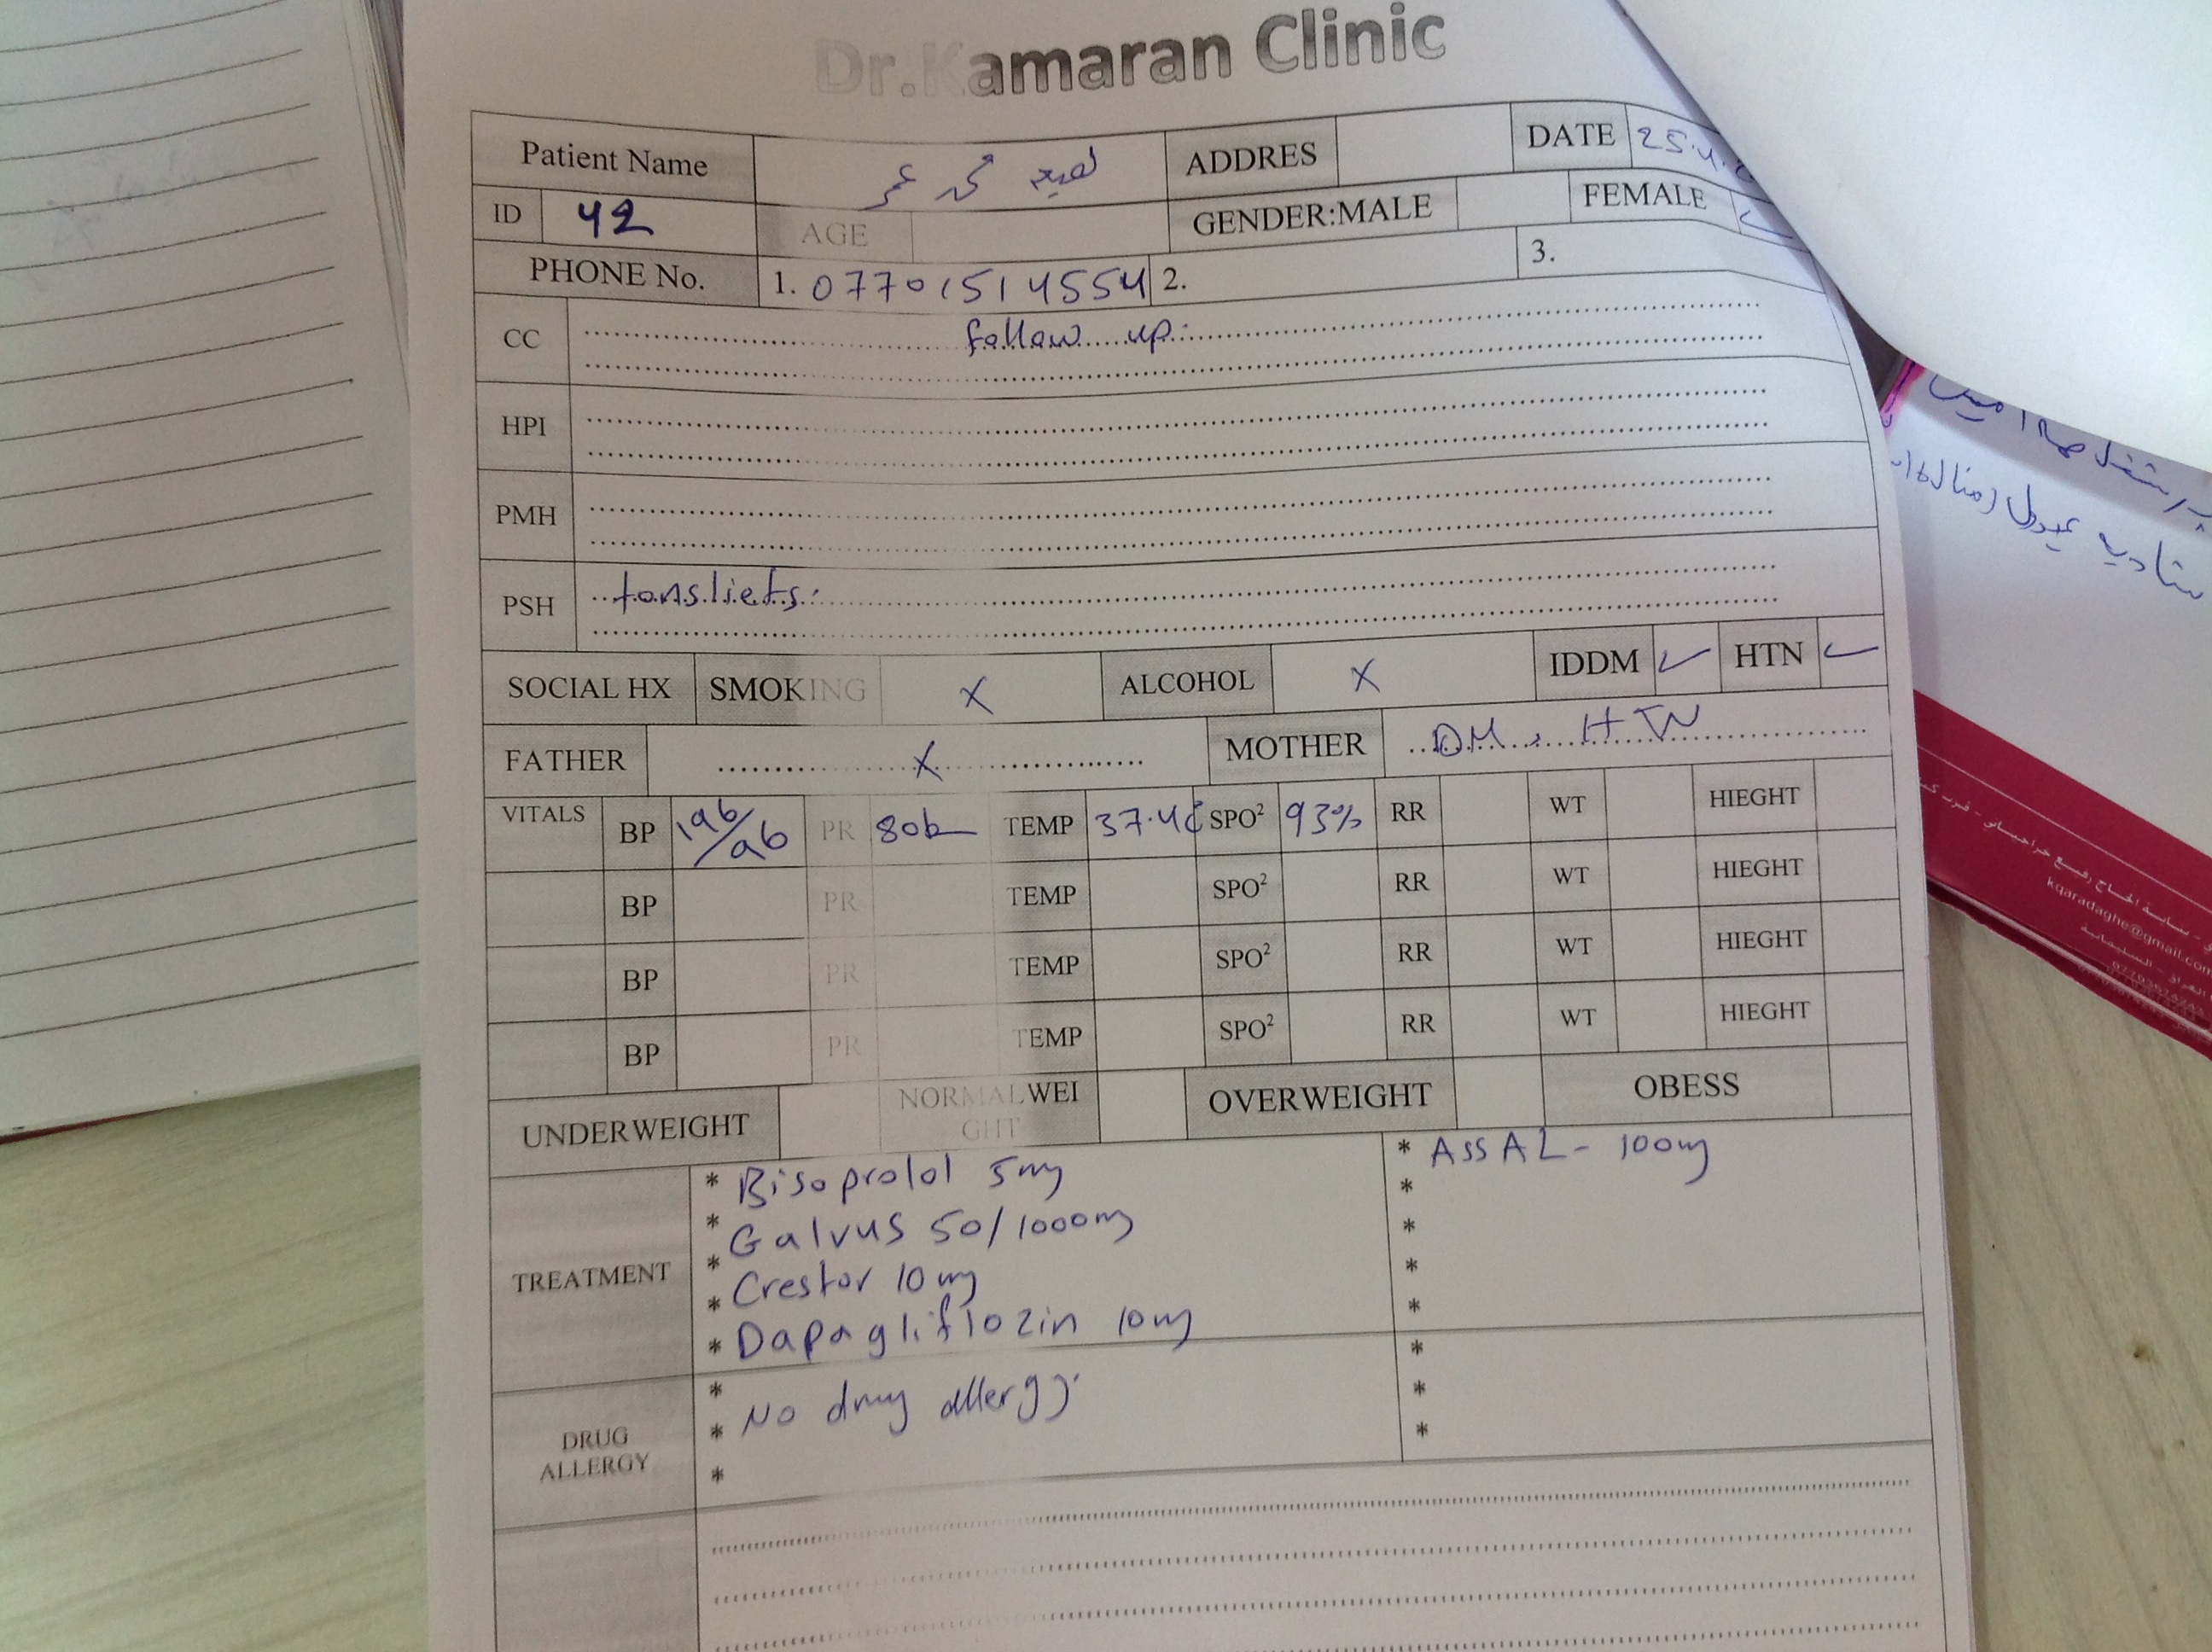 Dr.Kamaran Clinic
Patient Name محمد عمر ADDRES DATE
ID 42 AGE GENDER:MALE FEMALE ✓
PHONE No. 1. 07701514554 2. 3.
CC follow up:
HPI
PMH
PSH tonsliets:
SOCIAL HX SMOKING X ALCOHOL X IDDM ✓ HTN ✓
FATHER X MOTHER DM, HTN
VITALS BP 196/96 PR 80b TEMP 37.4c SPO² 93% RR WT HIEGHT
BP PR TEMP SPO² RR WT HIEGHT
BP PR TEMP SPO² RR WT HIEGHT
BP PR TEMP SPO² RR WT HIEGHT
UNDERWEIGHT NORMALWEIGHT OVERWEIGHT OBESS
TREATMENT
* Bisoprolol 5mg
* Galvus 50/1000mg
* Crestor 10mg
* Dapagliflozin 10mg
* AssAL- 100mg
DRUG ALLERGY
* No drug allergy.
kqaradaghe@gmail.com